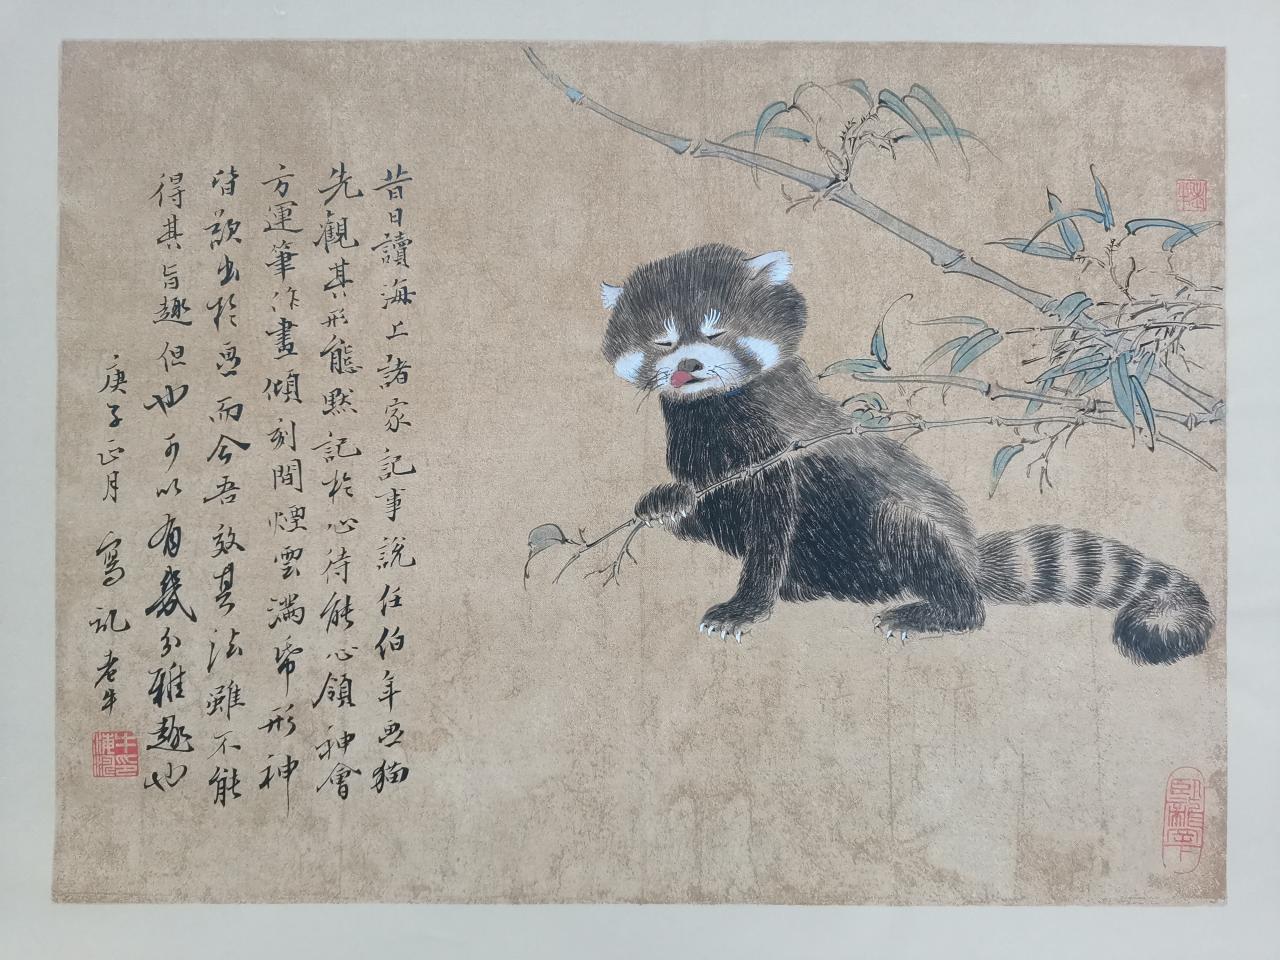 昔日讀海上諸家記事說任伯年畫猫
先觀其形態默記於心待能心領神會
方運筆作畫傾刻間煙雲滿希形神
皆欲出於畫而今吾效其法雖不能
得其旨趣但也可以有幾分雅趣也
庚子正月 寫訊老牛